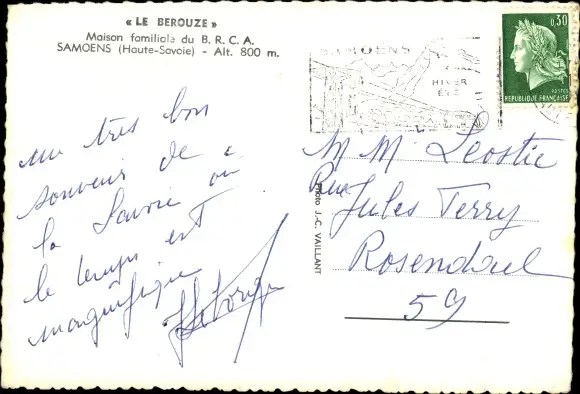 « LE BEROUZE »
Maison familiale du B. R. C. A.
SAMOENS (Haute-Savoie) - Alt. 800 m.
SAMOENS
HIVER
ÉTÉ
0,30
POSTES
REPUBLIQUE FRANÇAISE
un très bon
souvenir de
la Savoie où
le temps est
magnifique
M M Leostie
Rue
Jules Ferry
Rosendael
59
Photo J.-C. VAILLANT